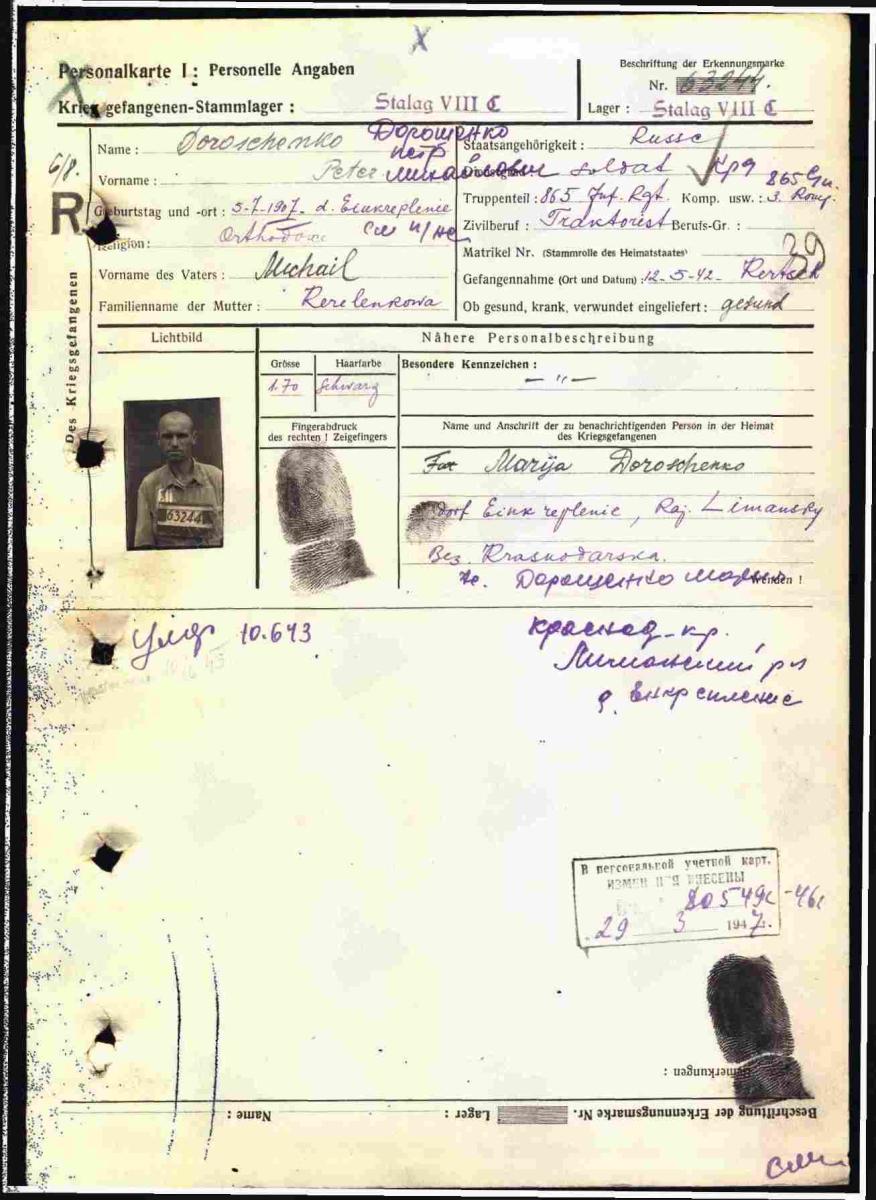 X
Personalkarte I: Personelle Angaben
Beschriftung der Erkennungsmarke
Nr. 63244.
Kriegsgefangenen-Stammlager: Stalag VIII C
Lager: Stalag VIII C
Des Kriegsgefangenen
R
Name: Doroschenko Дорошенко
Staatsangehörigkeit: Russe
Vorname: Peter Петр Михайлович
Soldat
Truppenteil: 865 Inf. Rgt. Komp. usw.: 3. Komp.
Geburtstag und -ort: 5-7-1907- d. Einkreplenie
Zivilberuf: Traktorist Berufs-Gr.:
Religion: Orthodox
Matrikel Nr. (Stammrolle des Heimatstaates)
39
Vorname des Vaters: Michail
Gefangennahme (Ort und Datum): 12-5-42- Kertsch
Familienname der Mutter: Kerelenkowa
Ob gesund, krank, verwundet eingeliefert: gesund
Lichtbild
Nähere Personalbeschreibung
Grösse
Haarfarbe
Besondere Kennzeichen:
1.70
Schwarz
— " —
Fingerabdruck
des rechten! Zeigefingers
Name und Anschrift der zu benachrichtigenden Person in der Heimat
des Kriegsgefangenen
63244
Marija Doroschenko
dorf Einkreplenie, Raj. Limansky
Bez. Krasnodarska.
Дорошенко Мария
Wenden!
Умер 10.6 43
Краснод-кр.
Лиманский р-н
В персональной учетной карт.
ИЗМЕНЕНИЯ ВНЕСЕНЫ
29 3 1947г.
Bemerkungen:
Name: Lager: Beschriftung der Erkennungsmarke Nr.